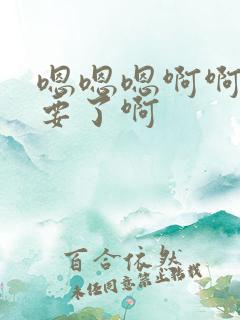 嗯嗯嗯啊啊
要了啊
百合依然
未经同意禁止转载